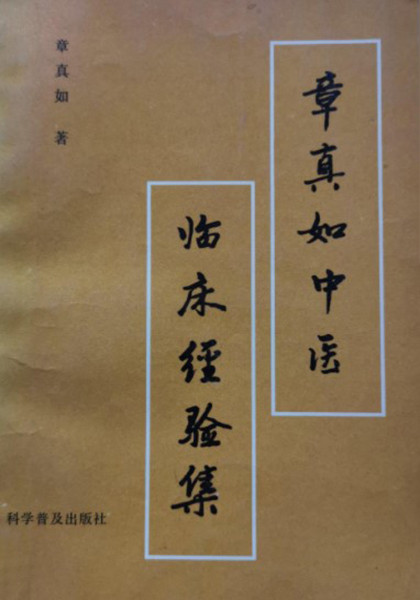 章真如中医
临床经验集
章真如 著
科学普及出版社